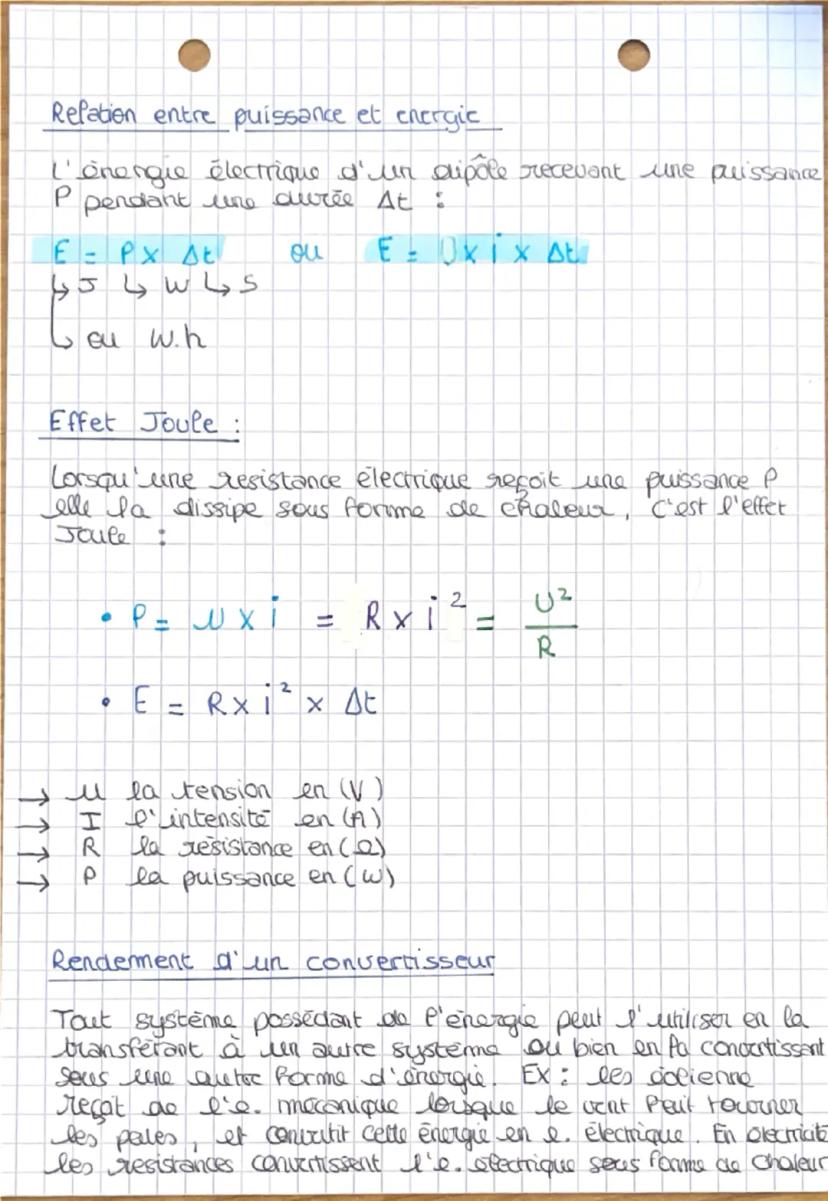 Relation entre puissance et energie
L'énergie électrique d'un dipôle recevant une puissance
P pendant une durée Δt :
E = P x Δt ou E = U x i x Δt
↳ J ↳ W ↳ S
↳ ou W.h
Effet Joule :
Lorsqu'une resistance électrique reçoit une puissance P
elle la dissipe sous forme de chaleur, c'est l'effet
Joule :
• P = U x i = R x i² = U²/R
• E = R x i² x Δt
→ U la tension en (V)
→ I l'intensité en (A)
→ R la résistance en (Ω)
→ P la puissance en (W)
Rendement d'un convertisseur
Tout système possédant de l'énergie peut l'utiliser en la
transférant à un autre système ou bien en la convertissant
sous une autre forme d'énergie. EX : les éolienne
reçoit de l'e. mécanique lorsque le vent fait tourner
les pales, et convertit cette énergie en e. électrique. En électricité
les resistances convertissent l'e. électrique sous forme de chaleur